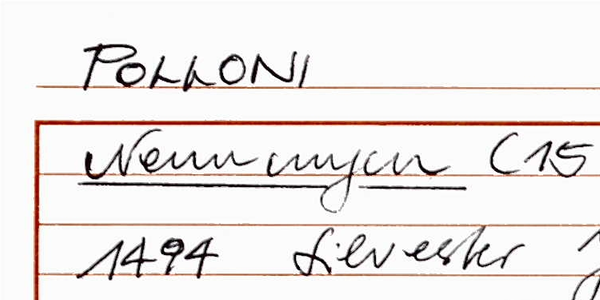 POLLONI
Nennungen (15
1494 Silvester